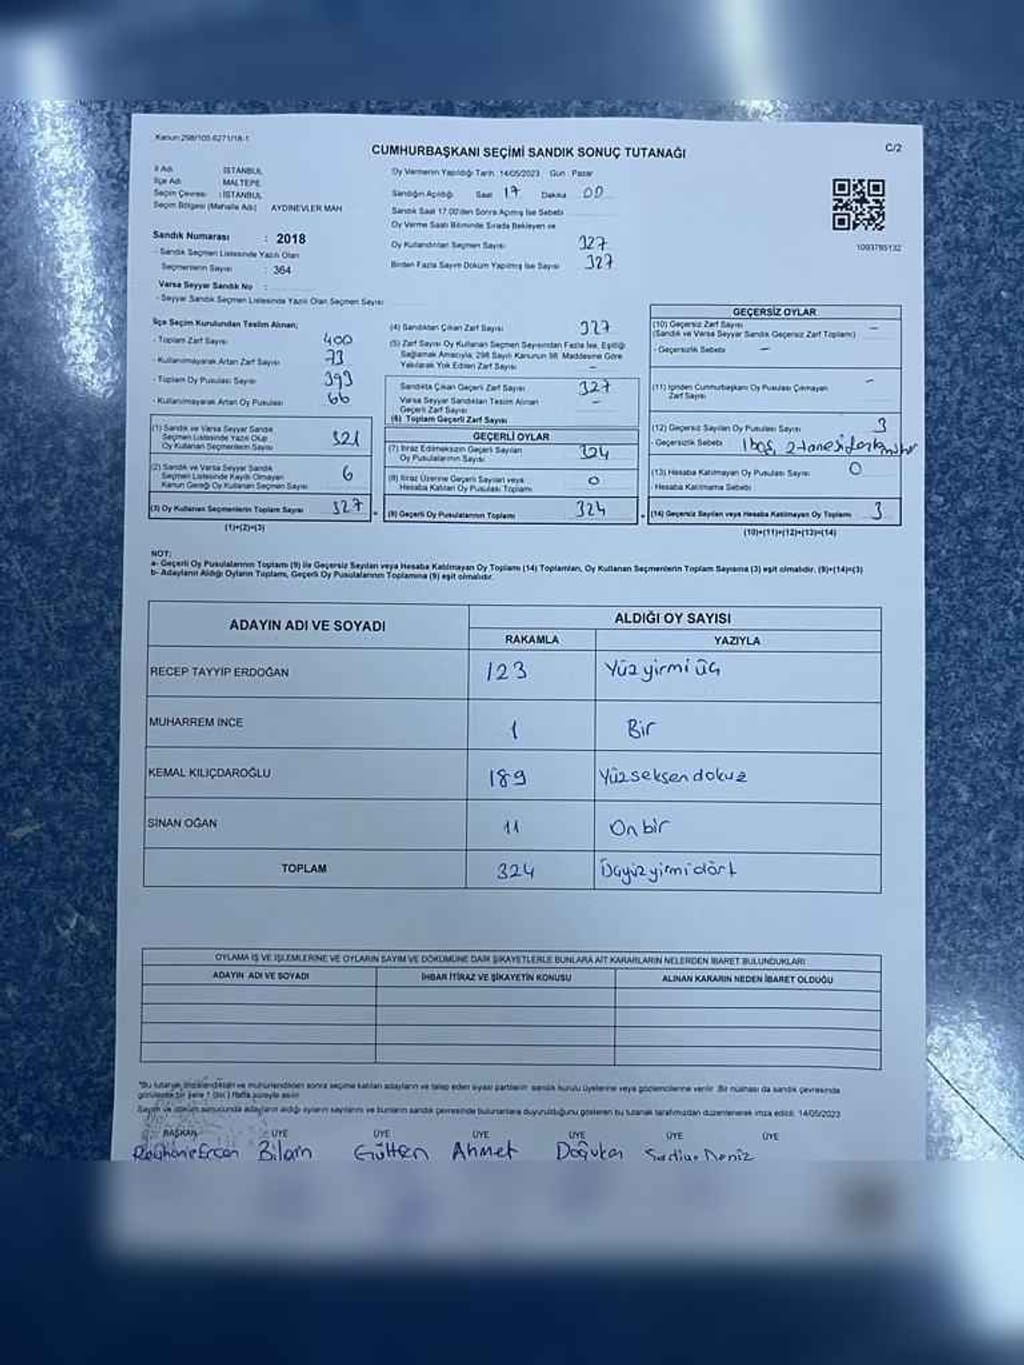 Kanun:298/105.6271/18-1
C/2
CUMHURBAŞKANI SEÇİMİ SANDIK SONUÇ TUTANAĞI
İl Adı : İSTANBUL
İlçe Adı : MALTEPE
Seçim Çevresi : İSTANBUL
Seçim Bölgesi (Mahalle Adı) AYDINEVLER MAH
Sandık Numarası : 2018
- Sandık Seçmen Listesinde Yazılı Olan
Seçmenlerin Sayısı : 364
Varsa Seyyar Sandık No :
- Seyyar Sandık Seçmen Listesinde Yazılı Olan Seçmen Sayısı
Oy Vermenin Yapıldığı Tarih :14/05/2023 Gün : Pazar
Sandığın Açıldığı Saat 17 Dakika 00
Sandık Saat 17.00'den Sonra Açılmış İse Sebebi
Oy Verme Saati Bitiminde Sırada Bekleyen ve
Oy Kullandırılan Seçmen Sayısı 327
Birden Fazla Sayım Döküm Yapılmış İse Sayısı 327
1003785132
İlçe Seçim Kurulundan Teslim Alınan;
- Toplam Zarf Sayısı 400
- Kullanılmayarak Artan Zarf Sayısı 73
- Toplam Oy Pusulası Sayısı 393
- Kullanılmayarak Artan Oy Pusulası 66
(1) Sandık ve Varsa Seyyar Sandık
Seçmen Listesinde Yazılı Olup
Oy Kullanan Seçmenlerin Sayısı 321
(2) Sandık ve Varsa Seyyar Sandık
Seçmen Listesinde Kayıtlı Olmayan
Kanun Gereği Oy Kullanan Seçmen Sayısı 6
(3) Oy Kullanan Seçmenlerin Toplam Sayısı 327
(1)+(2)=(3)
(4) Sandıktan Çıkan Zarf Sayısı 327
(5) Zarf Sayısı Oy Kullanan Seçmen Sayısından Fazla İse, Eşitliği
Sağlamak Amacıyla, 298 Sayılı Kanunun 98. Maddesine Göre
Yakılarak Yok Edilen Zarf Sayısı –
Sandıkta Çıkan Geçerli Zarf Sayısı 327
Varsa Seyyar Sandıktan Teslim Alınan
Geçerli Zarf Sayısı –
(6) Toplam Geçerli Zarf Sayısı
GEÇERLİ OYLAR
(7) İtiraz Edilmeksizin Geçerli Sayılan
Oy Pusulalarının Sayısı 324
(8) İtiraz Üzerine Geçerli Sayılan veya
Hesaba Katılan Oy Pusulası Toplamı 0
(9) Geçerli Oy Pusulalarının Toplamı 324
GEÇERSİZ OYLAR
(10) Geçersiz Zarf Sayısı –
(Sandık ve Varsa Seyyar Sandık Geçersiz Zarf Toplamı)
- Geçersizlik Sebebi –
(11) İçinden Cumhurbaşkanı Oy Pusulası Çıkmayan
Zarf Sayısı –
(12) Geçersiz Sayılan Oy Pusulası Sayısı 3
- Geçersizlik Sebebi 1 boş, 2 tanesi
(13) Hesaba Katılmayan Oy Pusulası Sayısı 0
- Hesaba Katılmama Sebebi
(14) Geçersiz Sayılan veya Hesaba Katılmayan Oy Toplamı 3
(10)+(11)+(12)+(13)=(14)
NOT:
a- Geçerli Oy Pusulalarının Toplamı (9) ile Geçersiz Sayılan veya Hesaba Katılmayan Oy Toplamı (14) Toplamları, Oy Kullanan Seçmenlerin Toplam Sayısına (3) eşit olmalıdır. (9)+(14)=(3)
b- Adayların Aldığı Oyların Toplamı, Geçerli Oy Pusulalarının Toplamına (9) eşit olmalıdır.
ADAYIN ADI VE SOYADI
ALDIĞI OY SAYISI
RAKAMLA YAZIYLA
RECEP TAYYİP ERDOĞAN 123 Yüz yirmi üç
MUHARREM İNCE 1 Bir
KEMAL KILIÇDAROĞLU 189 Yüzseksendokuz
SİNAN OĞAN 11 On bir
TOPLAM 324 Üçyüzyirmidört
OYLAMA İŞ VE İŞLEMLERİNE VE OYLARIN SAYIM VE DÖKÜMÜNE DAİR ŞİKAYETLERLE BUNLARA AİT KARARLARIN NELERDEN İBARET BULUNDUKLARI
ADAYIN ADI VE SOYADI İHBAR İTİRAZ VE ŞİKAYETİN KONUSU ALINAN KARARIN NEDEN İBARET OLDUĞU
"Bu tutanak imzalandıktan ve mühürlendikten sonra seçime katılan adayların ve talep eden siyasi partilerin sandık kurulu üyelerine veya gözlemcilerine verilir. Bir nüshası da sandık çevresinde
görülecek bir yere 1 (bir) hafta süreyle asılır.
Sayım ve döküm sonucunda adayların aldığı oyların sayılarını ve bunların sandık çevresinde bulunanlara duyurulduğunu gösteren bu tutanak tarafımızdan düzenlenerek imza edildi. 14/05/2023
BAŞKAN ÜYE ÜYE ÜYE ÜYE ÜYE ÜYE
Reyhane Ercan Bilam Gülten Ahmet Doğukan Deniz